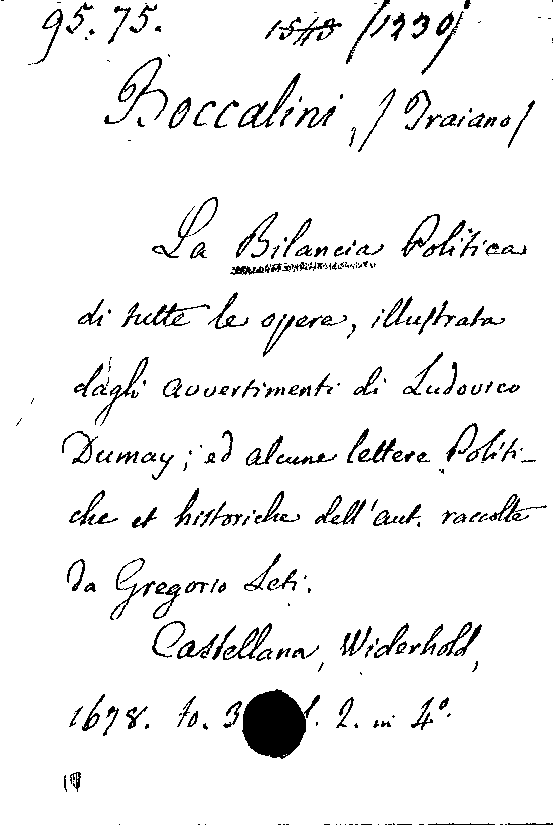 95.75. 1548 (1230)
Boccalini, (Traiano)
La Bilancia Politica
di tutte le opere, illustrata
dagli avvertimenti di Ludovico
Dumay; ed alcune lettere Politi-
che et historiche dell'aut. raccolte
da Gregorio Leti.
Castellana, Widerhold,
1678. to. 3 2. in 4º.